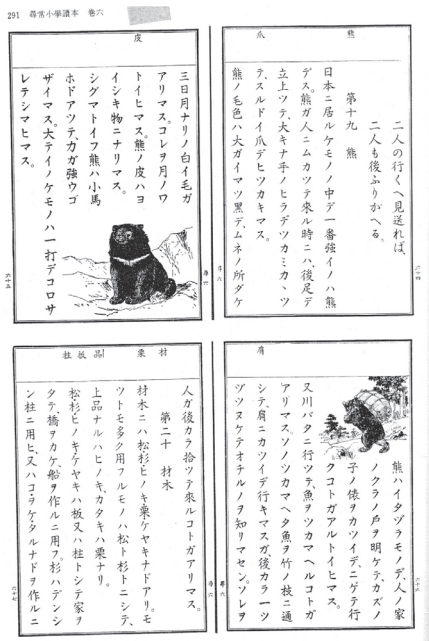 291 尋常小學讀本 卷六
熊
爪
二人の行くへ見送れば、
二人も後ふりかへる。
第十九 熊
日本ニ居ルケモノノ中デ一番強イノハ熊
デス。熊ガ人ニムカツテ來ル時ニハ、後足デ
立上ツテ、大キナ手ノヒラデツカミカヽツ
テ、スルドイ爪デヒツカキマス。
熊ノ毛色ハ大ガイマツ黑デ、ムネノ所ダケ
六十四
尋六
皮
三日月ナリノ白イ毛ガ
アリマス。コレヲ月ノワ
トイヒマス。熊ノ皮ハヨ
イシキ物ニナリマス。
シグマトイフ熊ハ小馬
ホドアツテ、力ガ強ウゴ
ザイマス。大テイノケモノハ一打デコロサ
レテシマヒマス。
六十五
肩
熊ハイタヅラモノデ、人ノ家
ノクラノ戸ヲ明ケテ、カズノ
子ノ俵ヲカツイデ、ニゲテ行
クコトガアルトイヒマス。
又川バタニ行ツテ、魚ヲツカマヘルコトガ
アリマス。ソノツカマヘタ魚ヲ竹ノ枝ニ通
シテ、肩ニカツイデ行キマスガ、後カラ一ツ
ヅツヌケテオチルノヲ知リマセン。ソレヲ
六十六
尋六
材
栗
品
板
柱
人ガ後カラ拾ツテ來ルコトガアリマス。
第二十 材木
材木ニハ松杉ヒノキ栗ケヤキナドアリ。モ
ツトモ多ク用フルモノハ松ト杉トニシテ、
上品ナルハヒノキ、カタキハ栗ナリ。
松杉ヒノキケヤキハ板又ハ柱トシテ家ヲ
タテ、橋ヲカケ、船ヲ作ルニ用フ。杉ハデンシ
ン柱ニ用ヒ、又ハコヲケタルナドヲ作ルニ
六十七